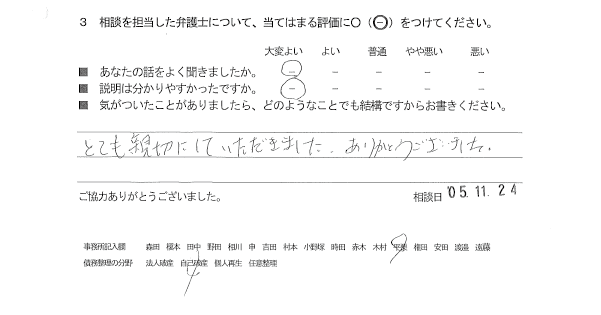 3 相談を担当した弁護士について、当てはまる評価に○（⊖）をつけてください。
大変よい よい 普通 やや悪い 悪い
■ あなたの話をよく聞きましたか。 − − − − −
■ 説明は分かりやすかったですか。 − − − − −
■ 気がついたことがありましたら、どのようなことでも結構ですからお書きください。
とても親切にしていただきました。ありがとうございました。
ご協力ありがとうございました。 相談日 '05.11.24
事務所記入欄 森田 榎本 田中 野田 相川 申 吉田 村本 小野塚 時田 赤木 木村 権田 安田 渡邉 遠藤
債務整理の分野 法人破産 自己破産 個人再生 任意整理